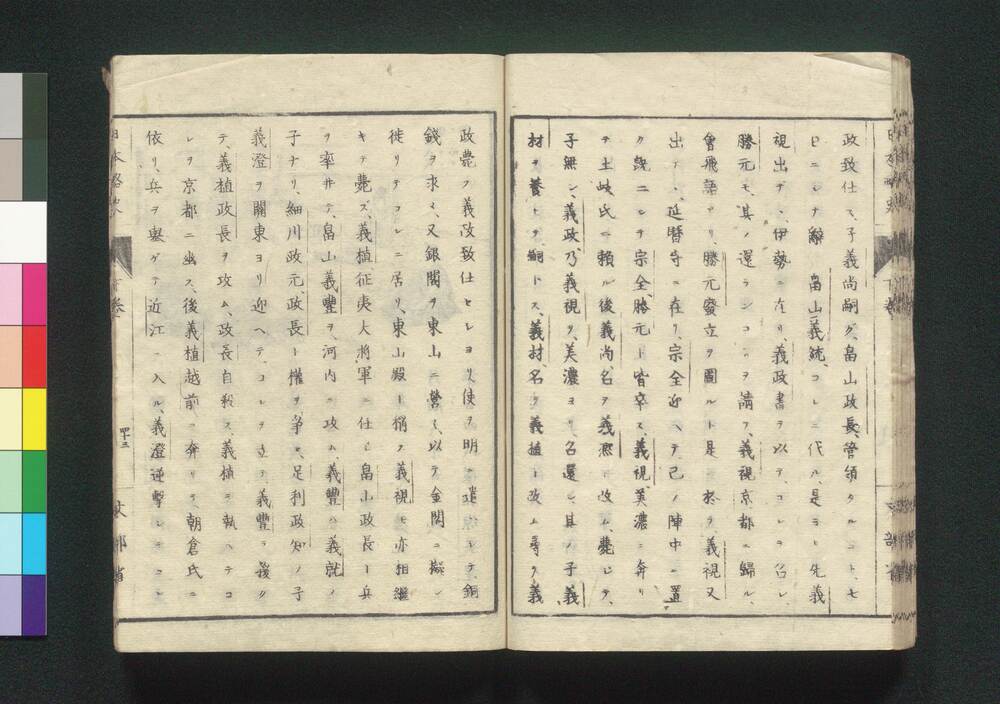 政致仕ス、子義尚嗣グ、畠山政長、管領タルコト、七
日ニシテ辭シ、畠山義統、コレニ代ル、是ヨリ先義
視出デヽ、伊勢ニ在リ、義政書ヲ以テ、コレヲ召シ、
勝元モ、其ノ還ランコトヲ請フ、義視京都ニ歸ル、
會飛語アリ、勝元廢立ヲ圖ルト、是ニ於テ、義視又
出デヽ、延暦寺ニ在リ、宗全迎ヘテ己ノ陣中ニ置
ク、幾ニシテ宗全、勝元、皆卒ス、義視、美濃ニ奔リ
テ土岐氏ニ賴ル、後義尚、名ヲ義凞ト改ム、薨ジテ、
子無シ、義政、乃義視ヲ、美濃ヨリ召還シ、其ノ子義
材ヲ養ヒテ嗣トス、義材、名ヲ義植ト改ム、尋デ義
政薨ズ、義政致仕セシヨリ、使ヲ明ニ遣シテ銅
錢ヲ求メ、又銀閣ヲ東山ニ營ミ、以テ金閣ニ擬シ、
徙リテコレニ居リ、東山殿ト稱ク、義視モ亦相繼
キテ薨ズ、義植征夷大將軍ニ任ジ、畠山政長ト兵
ヲ率井テ、畠山義豐ヲ河內ニ攻ム、義豐ハ義就ノ
子ナリ、細川政元、政長ト權ヲ爭ヒ、足利政知ノ子
義澄ヲ關東ヨリ迎ヘテ、コレヲ立テ、義豐ヲ援ク
テ、義植政長ヲ攻ム、政長自殺ス、義植ヲ執ヘテコ
レヲ京都ニ幽ス、後義植越前ニ奔リテ、朝倉氏ニ
依リ、兵ヲ擧ゲテ近江ニ入ル、義澄逆擊シテコレ
日本略史
下卷
四十三
文部省